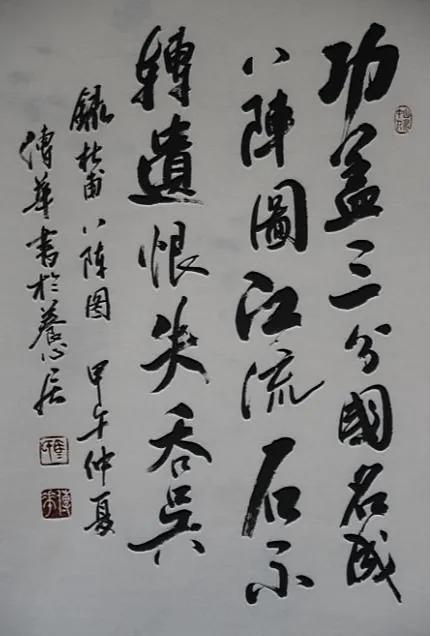 功盖三分國名成
八陣圖江流石不
轉遺恨失吞吳
録杜甫八陣图 甲午仲夏
傅華書於養心居